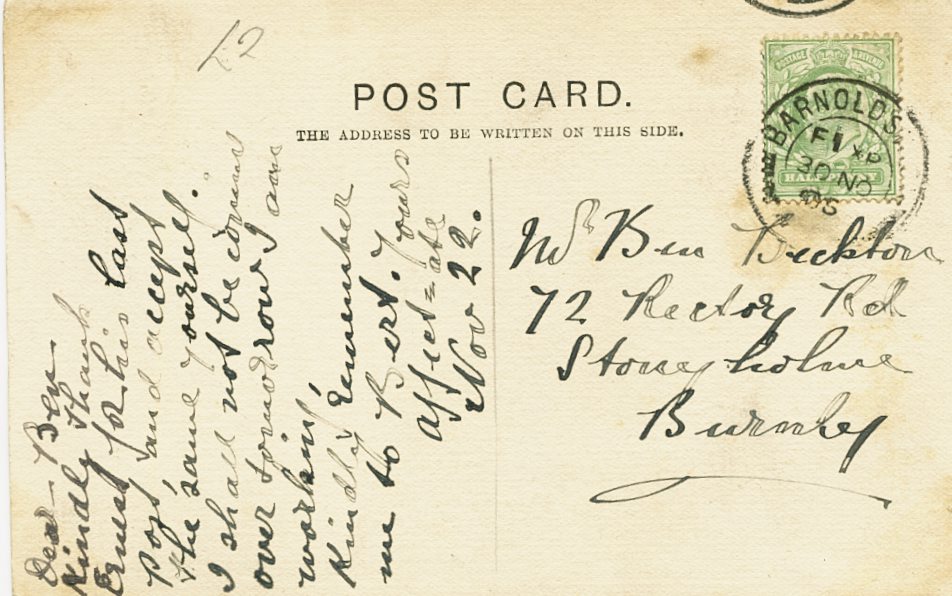 £2
POST CARD.
THE ADDRESS TO BE WRITTEN ON THIS SIDE.
POSTAGE & REVENUE
HALFPENNY
BARNOLDS
F1 XP
30 NO
05
Mr Ben Beckton
72 Rectory Rd
Stoneyholme
Burnley
Dear Ben
Kindly thank
Ernest for his last
post and accept
the same yourself.
I shall not be coming
over tomorrow I am
working
Kindly remember
me to Bert. Yours
affect=ate
Nov 22.